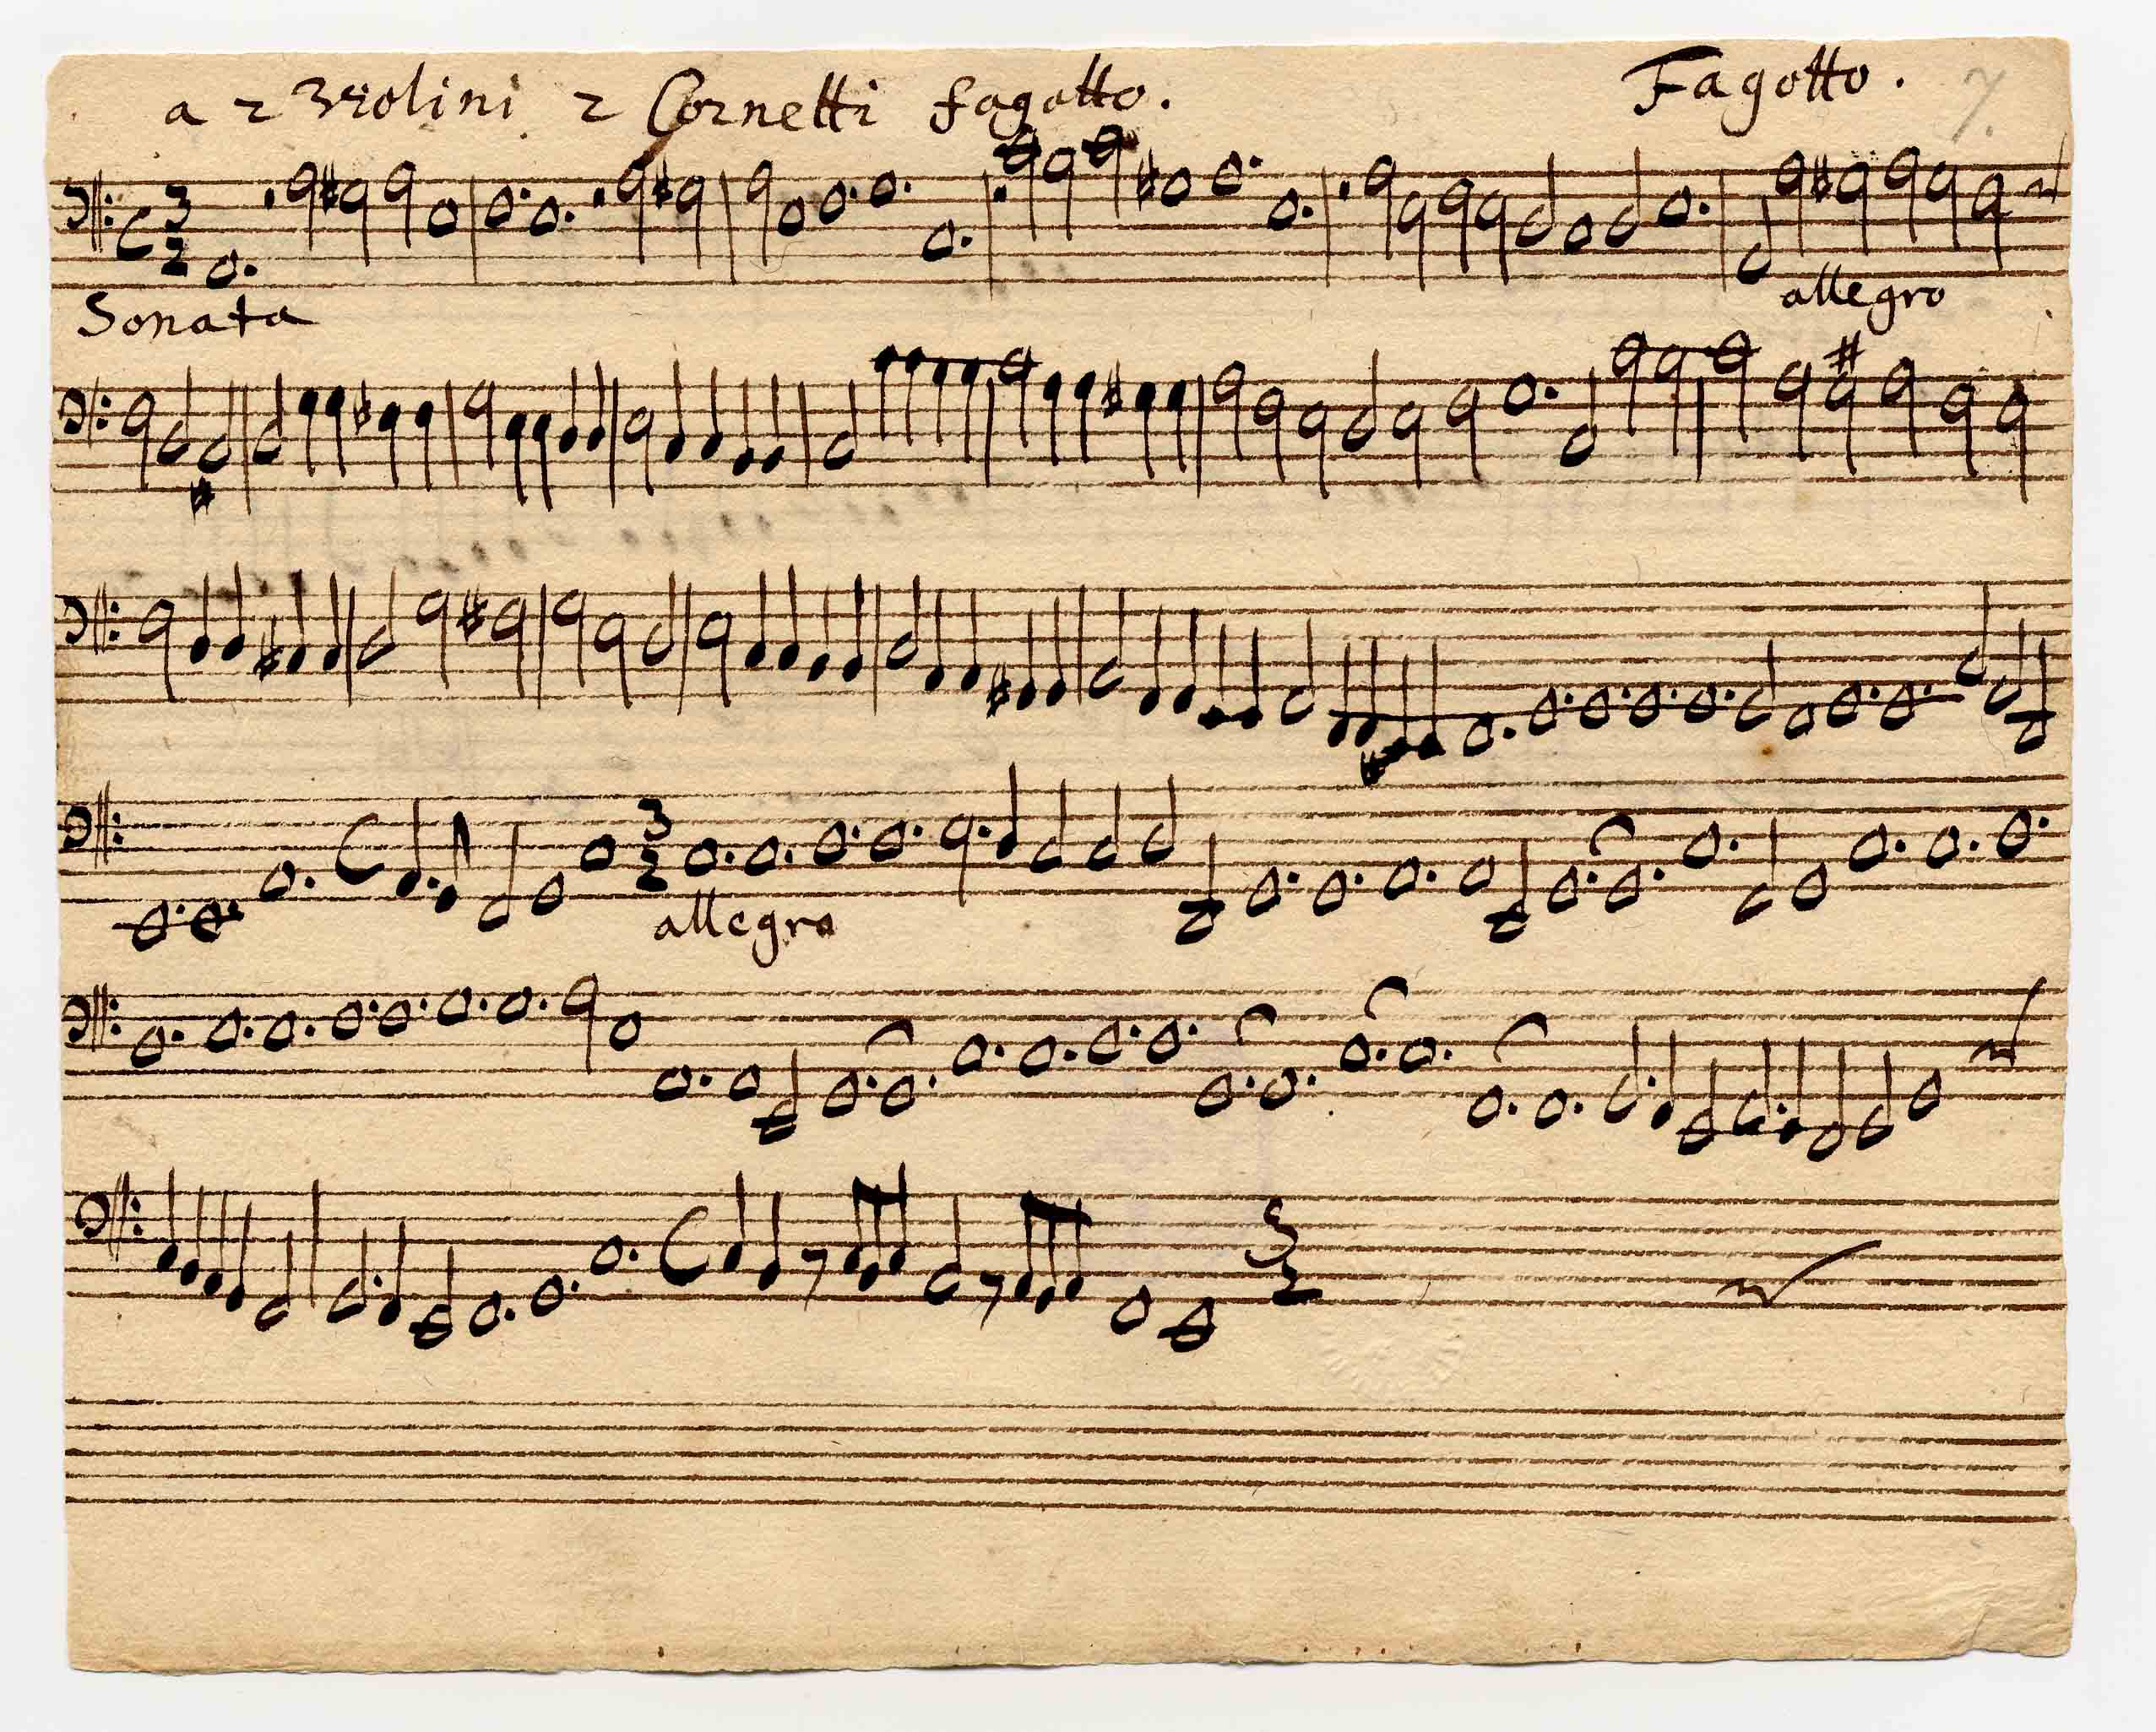 a 2 Violini 2 Cornetti fagotto. Fagotto. 7.
Sonata allegro
allegro